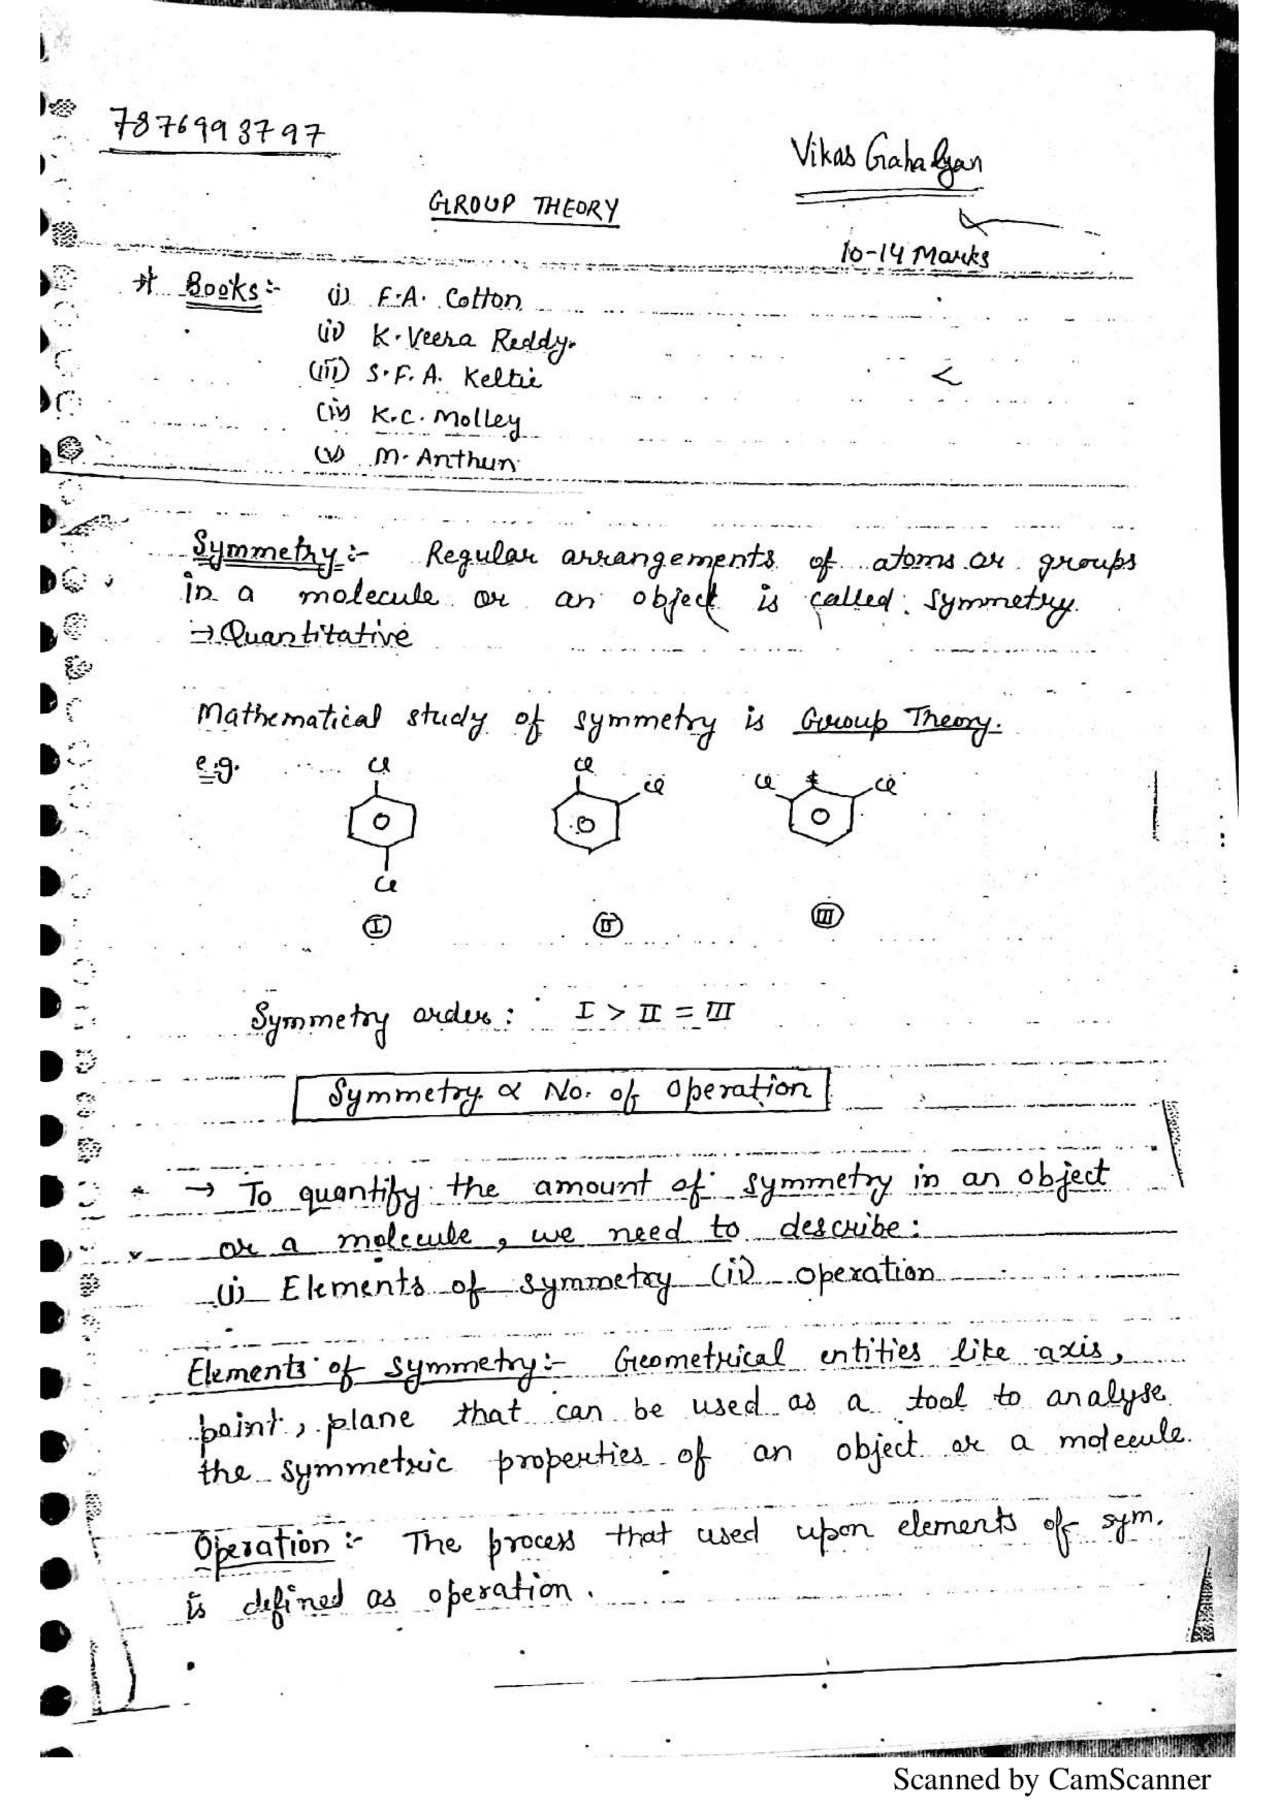 7876993797
Vikas Gahalyan
GROUP THEORY
10-14 Marks
* Books:- (i) F.A. Cotton
(ii) K. Veera Reddy.
(iii) S.F.A. Keltie
(iv) K.C. Molley
(v) M. Anthun
Symmetry:- Regular arrangements of atoms or groups
in a molecule or an object is called symmetry.
→ Quantitative
Mathematical study of symmetry is Group Theory.
e.g. Cl Cl Cl Cl Cl
Cl
I II III
Symmetry order: I > II = III
Symmetry ∝ No. of operation
→ To quantify the amount of symmetry in an object
or a molecule, we need to describe:
(i) Elements of symmetry (ii) operation
Elements of symmetry:- Geometrical entities like axis,
point, plane that can be used as a tool to analyse
the symmetric properties of an object or a molecule.
Operation:- The process that used upon elements of sym.
is defined as operation.
Scanned by CamScanner